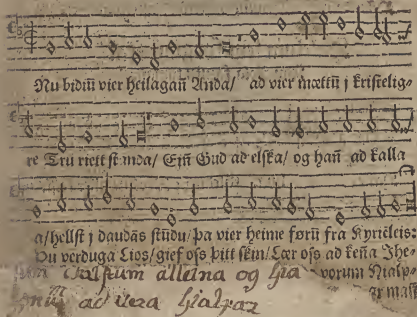 Nu bidiū vier heilagan Anda/ ad vier mættū j kristelig-
re Tru riett st nda/ Ejn Gud ad elska/ og han ad kalla
a/ hellst j daudās stūdu/ þa vier heime førū fra Kyrieleis:
Þu verduga Lios/ gief oss þitt skin/ Lær oss ad keña Jhe-
alleina og hia vorum Hialp-
ad vera hialpar ar mañ